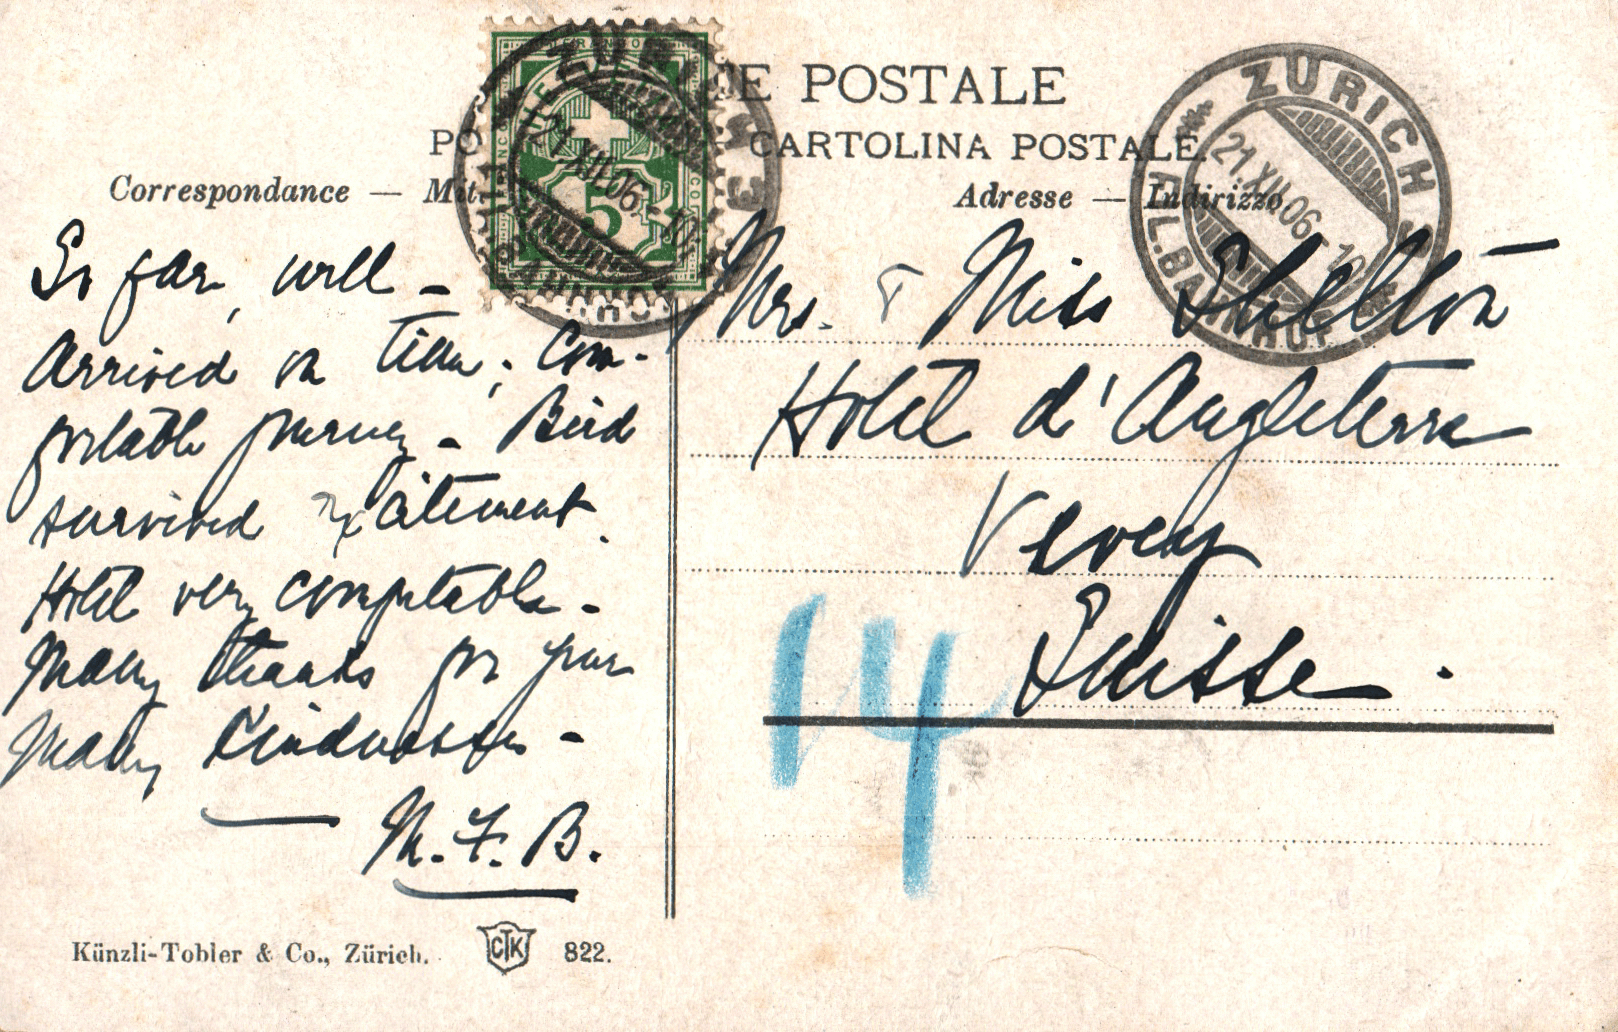 E POSTALE
PO
CARTOLINA POSTALE.
Correspondance — Mit
Adresse — Indirizzo.
FRANCO
5
ZÜRICH
21.XII.06
FIL. BAHNHOF
ZÜRICH
21.XII.06-10
FIL. BAHNHOF
So far, well –
Arrived on time; Com-
fortable journey – Bird
survived excitement.
Hotel very comfortable –
Many thanks for your
many kindnesses –
M. F. B.
Mrs. & Miss Shelton
Hotel d'Angleterre
Vevey
Suisse.
14
Künzli-Tobler & Co., Zürich.
CTK
822.